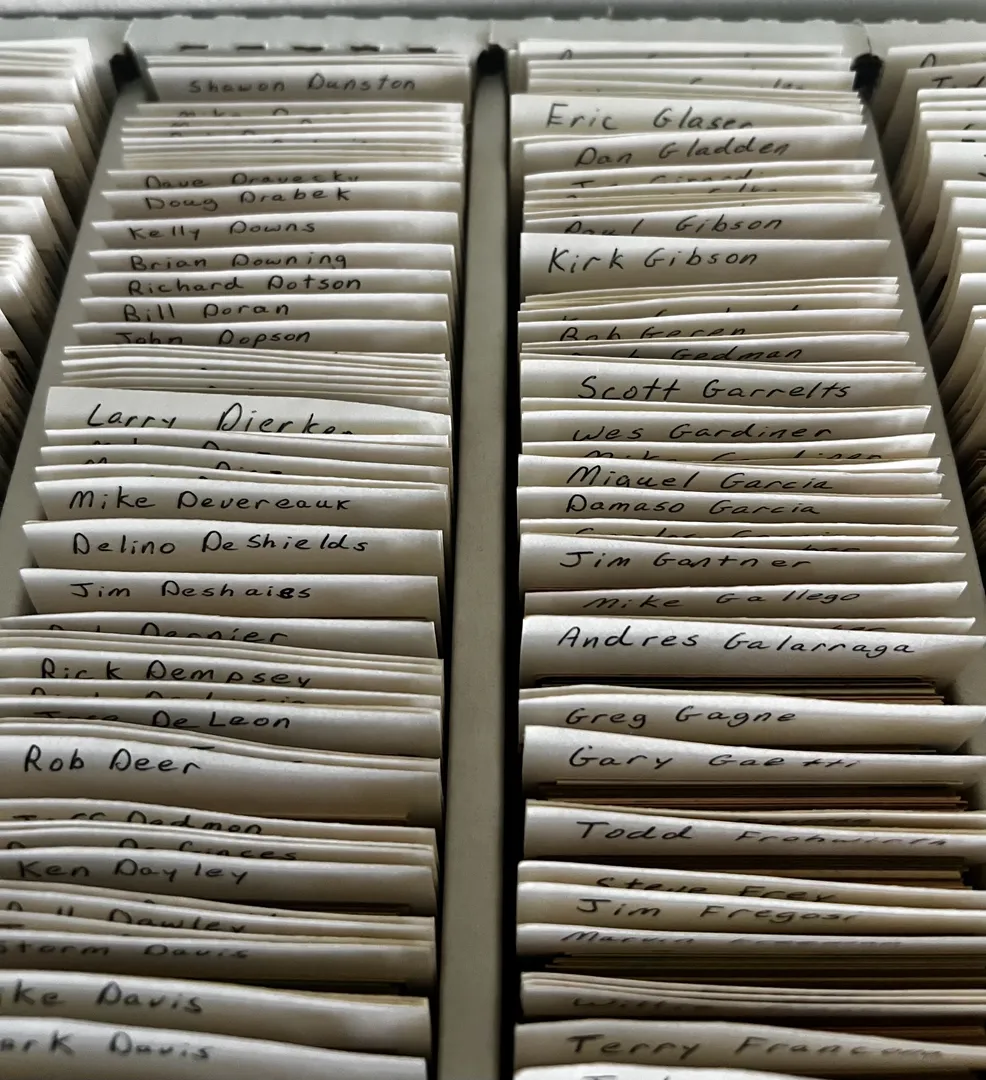 Shawon Dunston
Dave Dravecky
Doug Drabek
Kelly Downs
Brian Downing
Richard Dotson
Bill Doran
John Dopson
Larry Dierker
Mike Devereaux
Delino DeShields
Jim Deshaies
Dernier
Rick Dempsey
De Leon
Rob Deer
Jeff Dedmon
Ken Dayley
Dawley
Storm Davis
Mike Davis
Mark Davis
Eric Glaser
Dan Gladden
Paul Gibson
Kirk Gibson
Bob Geren
Gedman
Scott Garrelts
Wes Gardiner
Miguel Garcia
Damaso Garcia
Jim Gantner
Mike Gallego
Andres Galarraga
Greg Gagne
Gary Gaetti
Todd Frohwirth
Steve Frey
Jim Fregosi
Marvin Freeman
Terry Francona